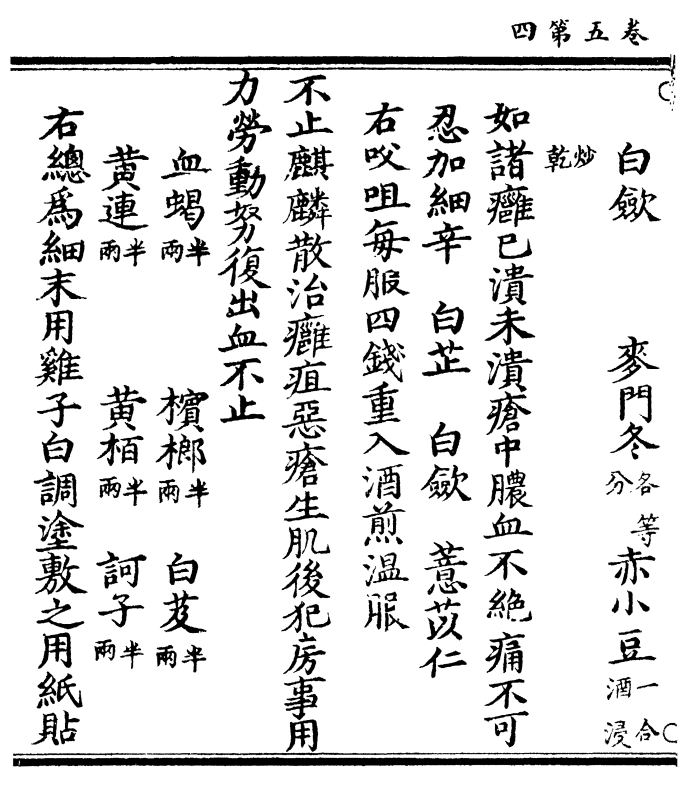 四第五卷
白歛 麥門冬各等分 赤小豆一合酒浸
炒乾
如諸癰已潰未潰瘡中膿血不絶痛不可
忍加細辛 白芷 白歛 薏苡仁
右㕮咀每服四錢重入酒煎温服
不止麒麟散治癰疽惡瘡生肌後犯房事用
力勞動努復出血不止
血蝎半兩 檳榔半兩 白芨半兩
黄連半兩 黄栢半兩 訶子半兩
右總爲細末用雞子白調塗敷之用紙貼